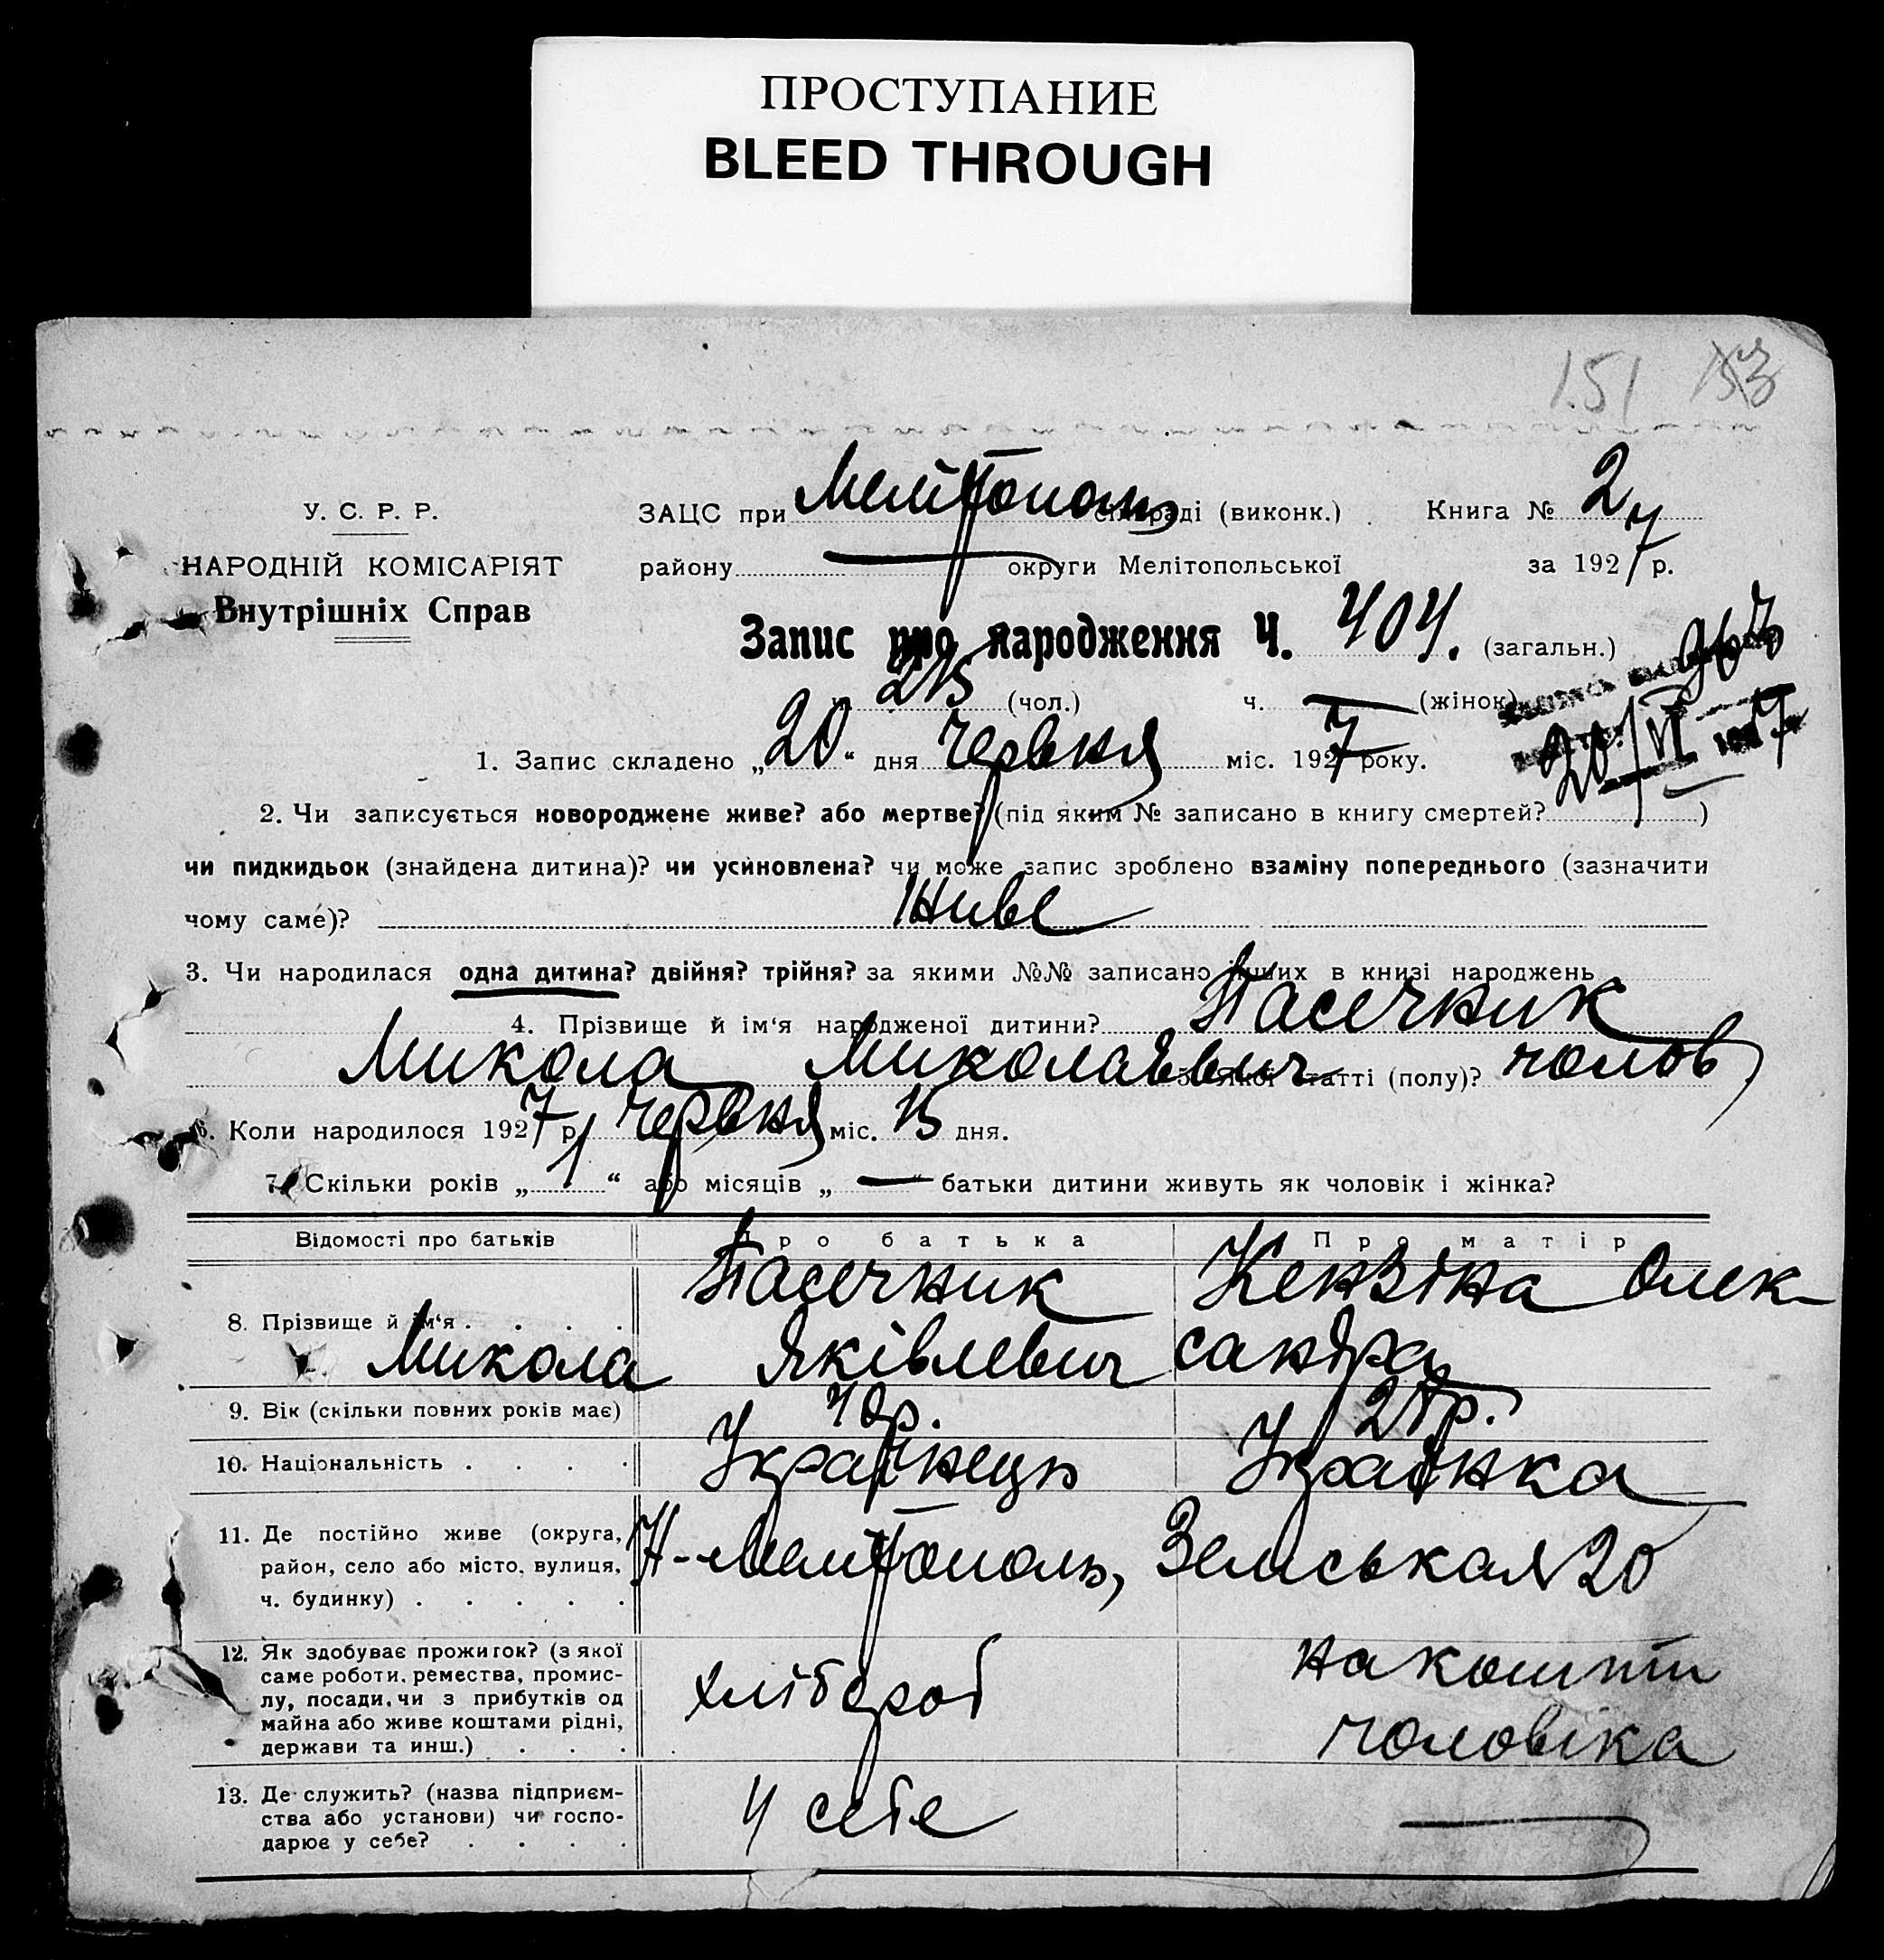 ПРОСТУПАНИЕ
BLEED THROUGH
151 153
У. С. Р. Р.
НАРОДНІЙ КОМІСАРІЯТ
Внутрішніх Справ
ЗАЦС при Мелітополь сільраді (виконк.) Книга № 2
району — округи Мелітопольської за 1927 р.
Запис про народження Ч. 404. (загальн.)
ч. 215 (чол.) ч. — (жінок)
20/VI 1927
1. Запис складено „20“ дня Червня міс. 1927 року.
2. Чи записується новороджене живе? або мертве? (під яким № записано в книгу смертей? )
чи пидкидьок (знайдена дитина)? чи усиновлена? чи може запис зроблено взаміну попереднього (зазначити
чому саме)? Живе
3. Чи народилася одна дитина? двійня? трійня? за якими №№ записано инших в книзі народжень
4. Прізвище й ім‘я народженої дитини? Пасечник
Микола Миколаєвич 5. Якої статті (полу)? чолов
6. Коли народилося 1927 р. Червня міс. 15 дня.
7. Скільки років „1“ або місяців „—“ батьки дитини живуть як чоловік і жінка?
Відомості про батьків Про батька Про матір
8. Прізвище й ім‘я . . . . Пасечник Микола Яківлевич Кензіна Олек-
сандра
9. Вік (скільки повних років має) 40р. р.
10. Національність . . . . Українець Українка
11. Де постійно живе (округа,
район, село або місто, вулиця,
ч. будинку) . . . . . Н-Мелітополь, Земськая 20
12. Як здобуває прожиток? (з якої
саме роботи, ремества, промис-
лу, посади, чи з прибутків од
майна або живе коштами рідні,
держави та инш.) . . . хлібороб на кошти
чоловіка
13. Де служить? (назва підприєм-
ства або установи) чи госпо-
дарює у себе? . . . . У себе —